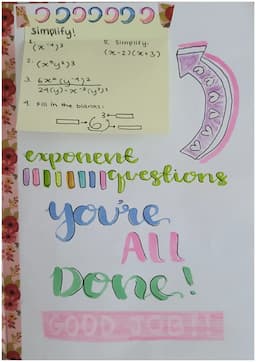 Simplify!
1. (x⁻⁴)³
2. (x⁹y⁶)³
4. Fill in the blanks:
3
6
5. Simplify:
(x-2)(x+3)
exponent
questions
you're
ALL
Done!
GOOD JOB!!